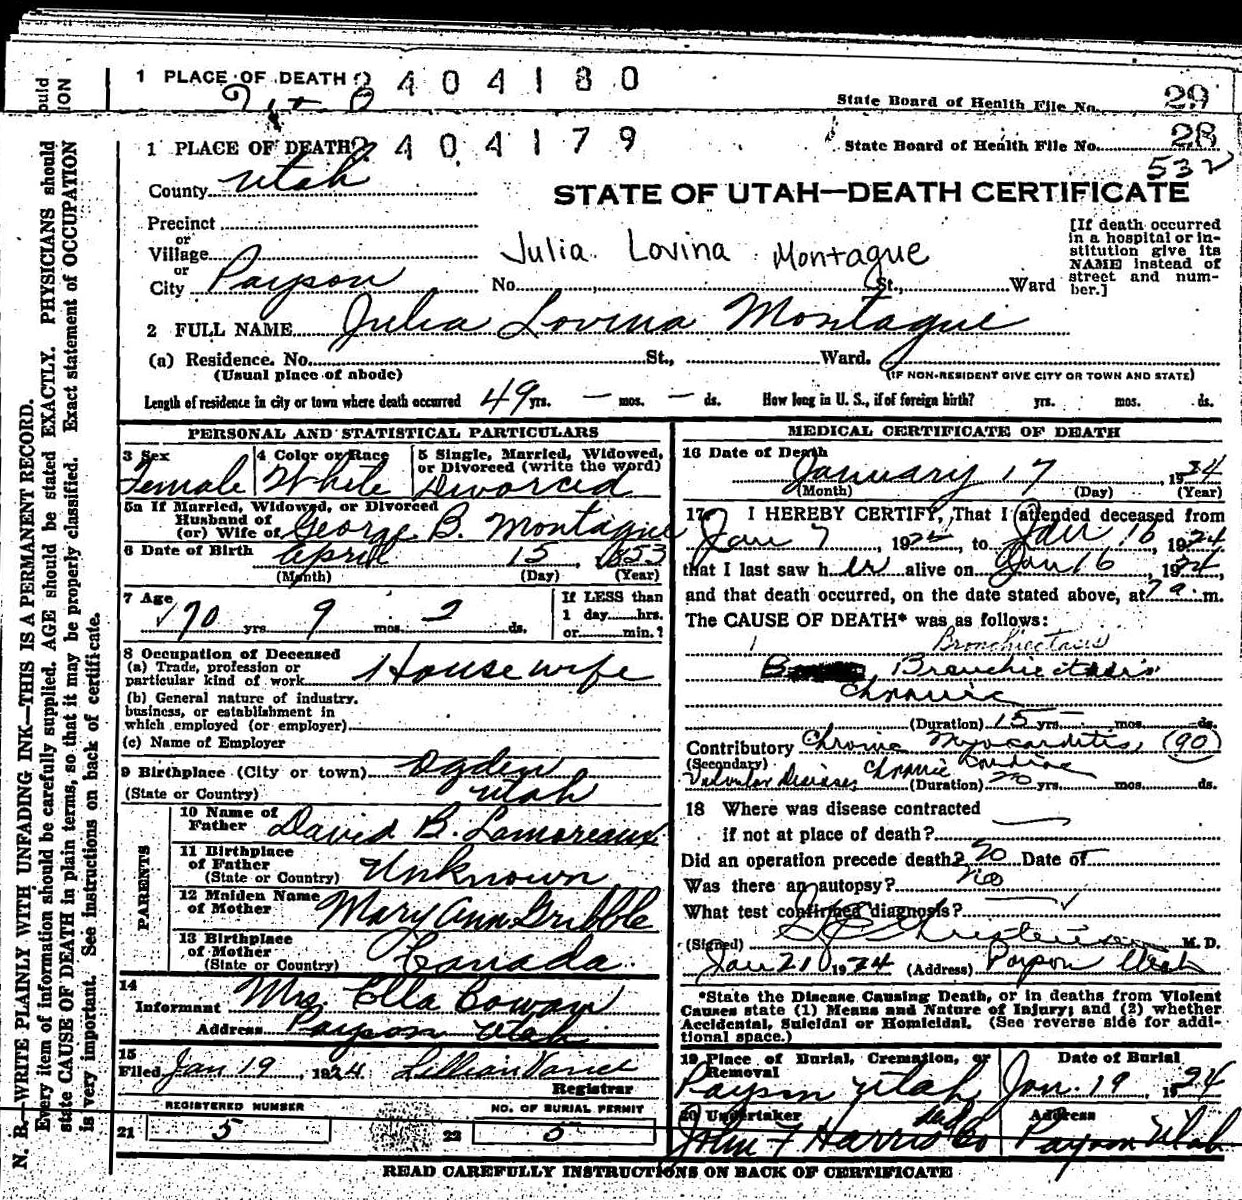 1 PLACE OF DEATH 2404180
State Board of Health File No. 29
1 PLACE OF DEATH 2404179
State Board of Health File No. 28
532
County Utah
STATE OF UTAH—DEATH CERTIFICATE
Precinct
or
Village
or
City Payson No. St., Ward
Julia Lovina Montague
[If death occurred
in a hospital or in-
stitution give its
NAME instead of
street and num-
ber.]
2 FULL NAME Julia Lovina Montague
(a) Residence. No. St., Ward.
(Usual place of abode)
(IF NON-RESIDENT GIVE CITY OR TOWN AND STATE)
Length of residence in city or town where death occurred 49 yrs. — mos. — ds. How long in U. S., if of foreign birth? yrs. mos. ds.
PERSONAL AND STATISTICAL PARTICULARS
3 Sex Female
4 Color or Race White
5 Single, Married, Widowed,
or Divorced (write the word)
Divorced
5a If Married, Widowed, or Divorced
Husband of
(or) Wife of George B. Montague
6 Date of Birth April 15, 1853
(Month) (Day) (Year)
7 Age 70 yrs. 9 mos. 2 ds.
If LESS than
1 day hrs.
or min.?
8 Occupation of Deceased
(a) Trade, profession or
particular kind of work Housewife
(b) General nature of industry,
business, or establishment in
which employed (or employer)
(c) Name of Employer
9 Birthplace (City or town) Ogden
(State or Country) Utah
PARENTS
10 Name of
Father David B. Lamoreaux
11 Birthplace
of Father
(State or Country) Unknown
12 Maiden Name
of Mother Mary Ann Gribble
13 Birthplace
of Mother
(State or Country) Canada
14
Informant Mrs. Ella Cowan
Address Payson Utah
15
Filed Jan 19, 1924 Lillian
Registrar
REGISTERED NUMBER
21 5
NO. OF BURIAL PERMIT
22 5
MEDICAL CERTIFICATE OF DEATH
16 Date of Death
January 17, 1924
(Month) (Day) (Year)
17 I HEREBY CERTIFY, That I attended deceased from
Jan 7, 1924, to Jan 16, 1924
that I last saw her alive on Jan 16, 1924,
and that death occurred, on the date stated above, at 7 a. m.
The CAUSE OF DEATH* was as follows:
Bronchiectasis
Bronchiectasis
Chronic
(Duration) 15 yrs. — mos. ds.
Contributory Chronic Myocarditis (90)
(Secondary)
Valvular Disease, Chronic Cardiac
(Duration) 20 yrs. mos. ds.
18 Where was disease contracted
if not at place of death?
Did an operation precede death? no Date of
Was there an autopsy? no
What test confirmed diagnosis?
(Signed) Christensen M. D.
Jan 21 1924 (Address) Payson Utah
*State the Disease Causing Death, or in deaths from Violent
Causes state (1) Means and Nature of Injury; and (2) whether
Accidental, Suicidal or Homicidal. (See reverse side for addi-
tional space.)
19 Place of Burial, Cremation, or
Removal
Date of Burial
Payson Utah Jan. 19 1924
20 Undertaker Address
John F Harris Co Payson Utah
READ CAREFULLY INSTRUCTIONS ON BACK OF CERTIFICATE
N. B.—WRITE PLAINLY WITH UNFADING INK—THIS IS A PERMANENT RECORD.
Every item of information should be carefully supplied. AGE should be stated EXACTLY. PHYSICIANS should
state CAUSE OF DEATH in plain terms, so that it may be properly classified. Exact statement of OCCUPATION
is very important. See instructions on back of certificate.